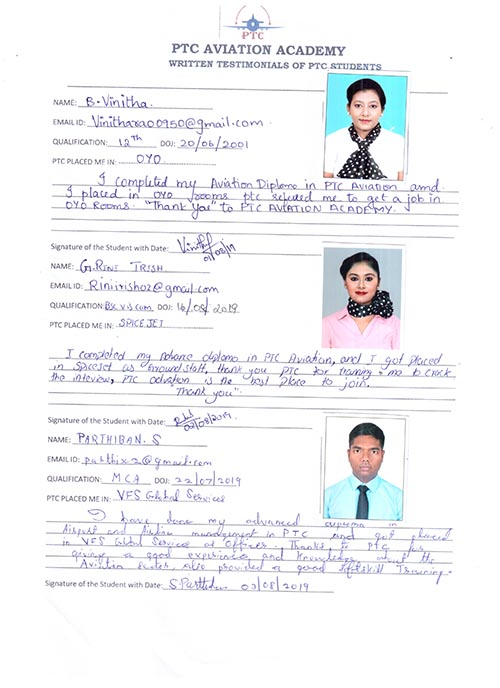 PTC
PTC AVIATION ACADEMY
WRITTEN TESTIMONIALS OF PTC STUDENTS
NAME: B. Vinitha.
EMAIL ID: Vinitharao0950@gmail.com
QUALIFICATION: 12th DOJ: 20/06/2001
PTC PLACED ME IN: OYO
I completed my Aviation Diploma in PTC Aviation and
I placed in OYO rooms ptc refered me to get a job in
OYO Rooms. "Thank You" to PTC AVIATION ACADEMY.
Signature of the Student with Date:
NAME: G. Rini Trish
EMAIL ID: Rinitrish02@gmail.com
QUALIFICATION: Bsc vis com DOJ: 16/08/2019
PTC PLACED ME IN: SPICEJET
I completed my Advance diploma in PTC Aviation, and I got placed
in Spicejet as Ground staff, thank you PTC for training me to crack
the interview, PTC aviation is the best place to join.
Thank you".
Signature of the Student with Date: 02/08/2019.
NAME: PARTHIBAN. S
EMAIL ID: parthix2@gmail.com
QUALIFICATION: MCA DOJ: 22/07/2019
PTC PLACED ME IN: VFS Global Services
I have done my advanced diploma in
Airport and Airline management in PTC and got placed
in VFS Global Service as Officer. Thanks to PTC for
giving a good experience and knowledge about the
Aviation also provided a good softskill Training.
Signature of the Student with Date: 03/08/2019